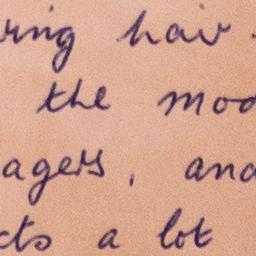 ring hair
the mod
agers, and
cts a lot